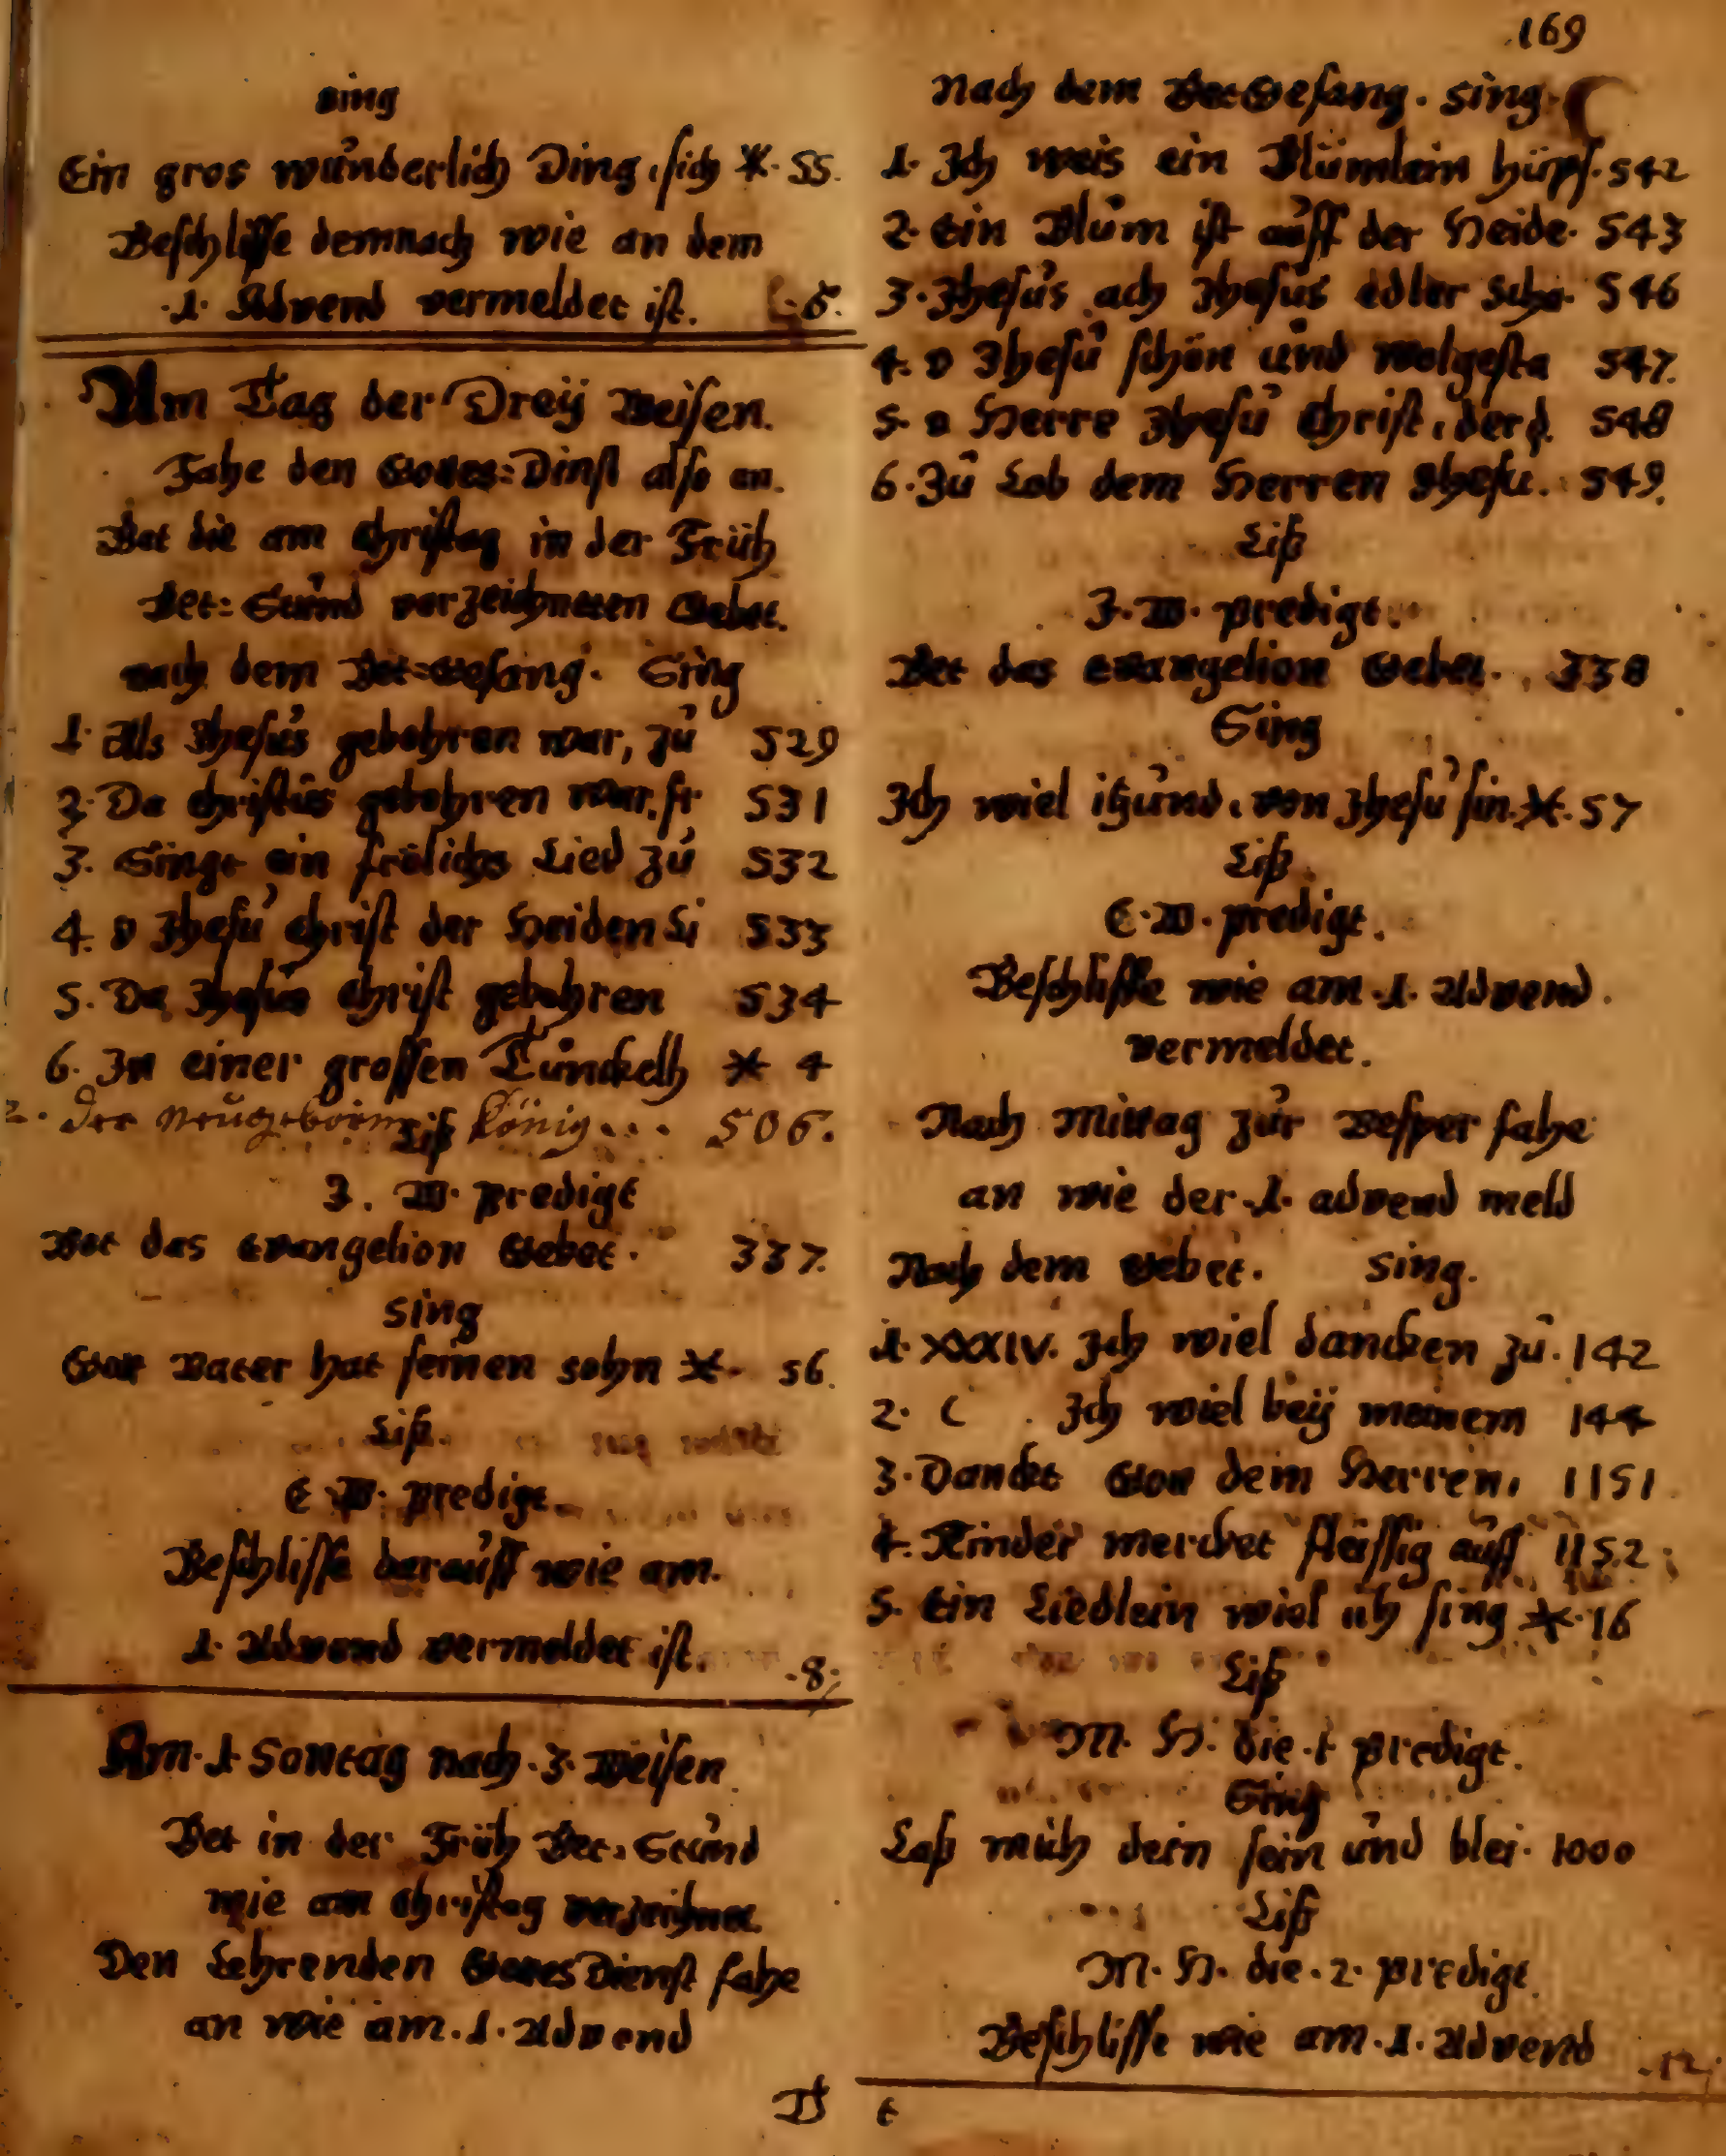 169
sing
Ein gros wunderlich Ding, sich *. 55.
Beschlisse demnach wie an dem
.1. Advend vermeldet ist. 6.
Am Tag der Dreÿ Weisen.
Fahe den Gottes=Dinst also an.
Bet die am Christag in der Früh
Bet=Stund verzeichneten Gebet.
nach dem Bet=Gesang. Sing
1. Als Jhesus gebohren war, zu 529
2. Da Christus gebohren war, fr 531
3. Singt ein frölichs Lied zu 532
4. O Jhesu Christ der Heiden Li 533
5. Da Jhesus Christ gebohren 534
6. In einer grossen Tunckelh * 4
der neugeborne König... 506.
Liß
J. W. predigt
Bet das Evangelion Gebet. 337.
sing
Gott Vater hat seinen sohn *. 56.
Liß.
E. W. predigt.
Beschlisse darauff wie am.
1. Advend vermeldet ist. .8.
Am .1. Sontag nach .3. Weisen.
Bet in der Früh Bet=Stund
wie am Christag verzeichnet.
Den Lehrenden Gottes Dienst fahe
an wie am .1. Advend
nach dem Bet Gesang. sing.
1. Ich weis ein Blümlein hüpf. 542
2. Ein Blum ist auff der Heide. 543
3. Jhesus ach Jhesus edler scho. 546
4. O Jhesu schön und wolgesta 547.
5. O Herre Jhesu Christ, der d. 548
6. Zu Lob dem Herren Jhesu. 549.
Liß
J. W. predigt.
Bet das Evangelion Gebet. 338
Sing
Ich wiel itzund, von Jhesu sin. *. 57
Liß.
E. W. predigt.
Beschlisse wie am .1. Advend.
vermeldet.
Nach Mittag zur Vesper fahe
an wie der .1. advend meld
Nach dem Gebet. sing.
1. XXXIV. Ich wiel dancken zu. 142
2. C. Ich wiel beÿ meinem 144
3. Danckt Gott dem Herren, 1151
4. Kinder mercket fleissig auff 1152
5. Ein Liedlein wiel ich sing *. 16
Liß
M. H. die .1. predigt.
Sing
Laß mich dein sein und blei. 1000
Liß
M. H. die .2. predigt.
Beschlisse wie am .1. Advend .12.